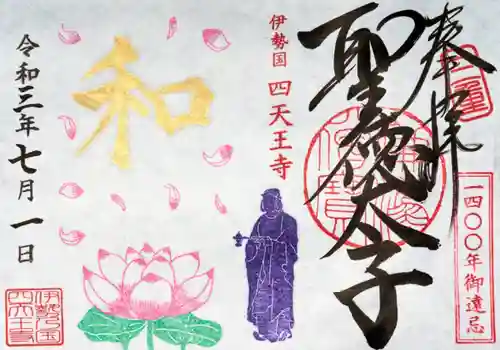 奉拝
聖徳太子
一四〇〇年御遠忌
伊勢国
四天王寺
和
令和三年七月一日